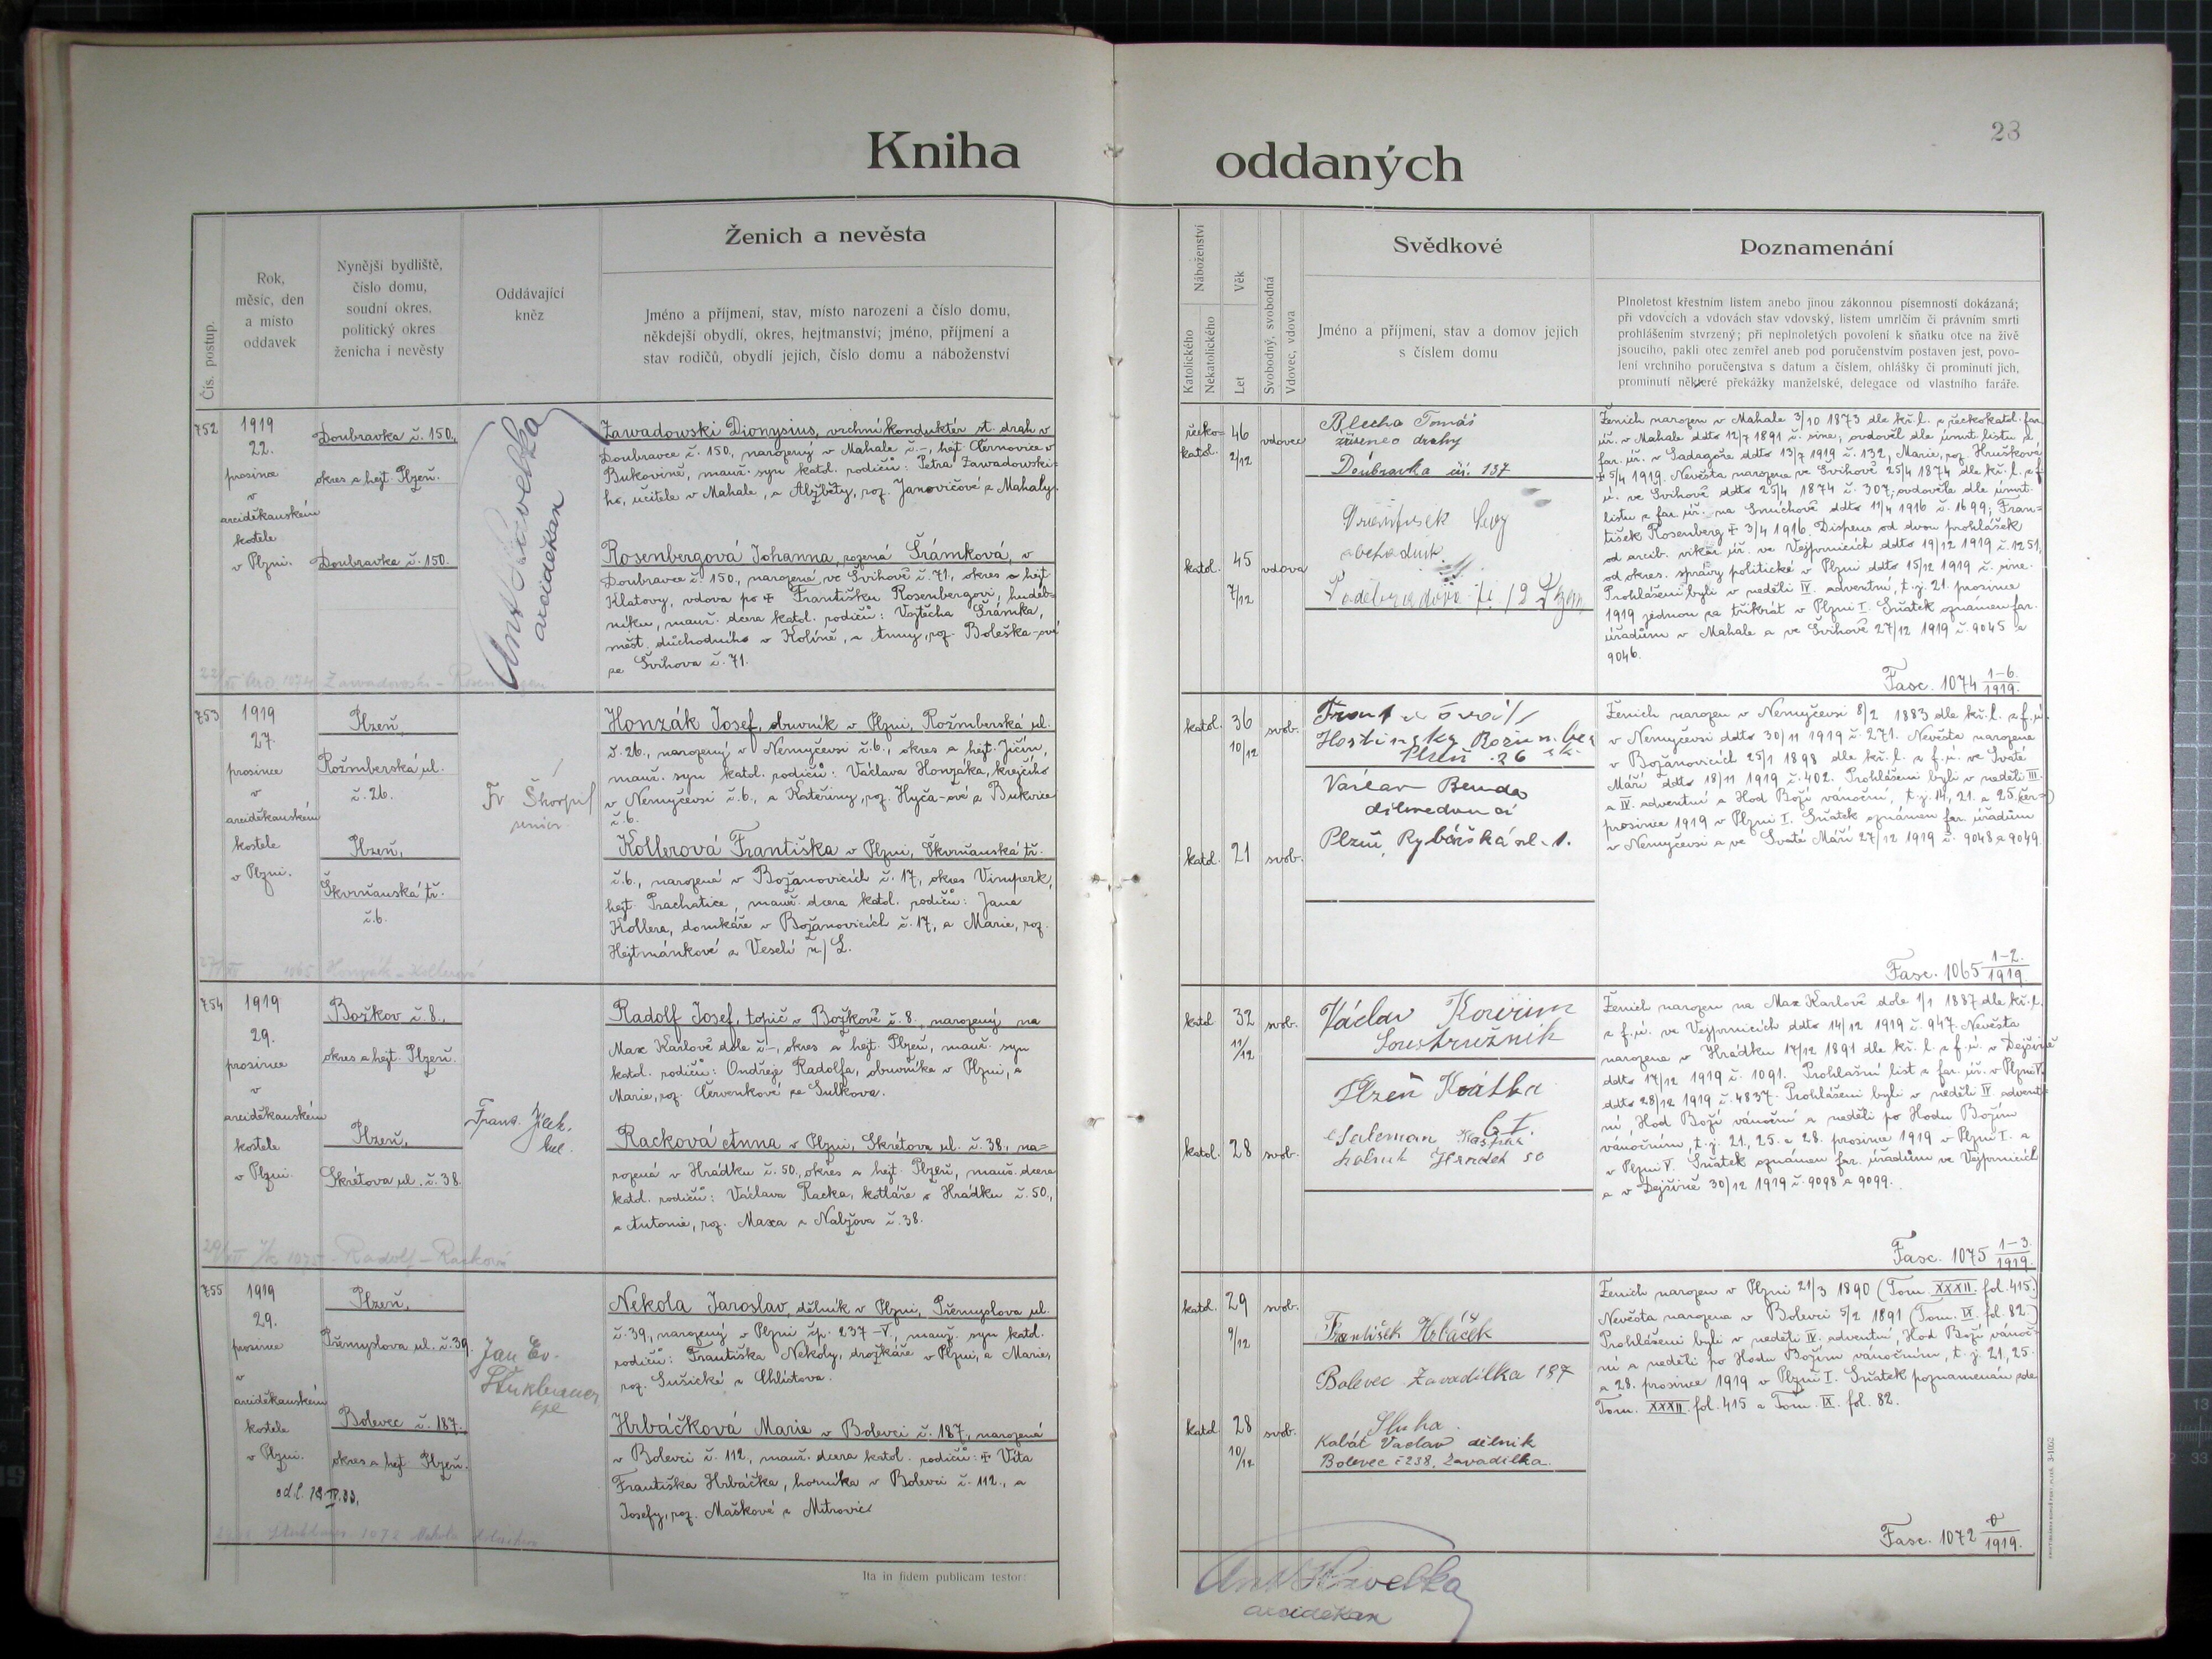 28
Kniha oddaných
Čís. postup.
Rok,
měsíc, den
a místo
oddavek
Nynější bydliště,
číslo domu,
soudní okres,
politický okres
ženicha i nevěsty
Oddávající
kněz
Ženich a nevěsta
Jméno a příjmení, stav, místo narození a číslo domu,
někdejší obydlí, okres, hejtmanství; jméno, příjmení a
stav rodičů, obydlí jejich, číslo domu a náboženství
Náboženství
Katolického
Nekatolického
Věk
Let
Svobodný, svobodná
Vdovec, vdova
Svědkové
Jméno a příjmení, stav a domov jejich
s číslem domu
Poznamenání
Plnoletost křestním listem anebo jinou zákonnou písemností dokázaná;
při vdovcích a vdovách stav vdovský, listem úmrlčím či právním smrti
prohlášením stvrzený; při neplnoletých povolení k sňatku otce na živě
jsoucího, pakli otec zemřel aneb pod poručenstvím postaven jest, povo-
lení vrchního poručenstva s datum a číslem, ohlášky či prominutí jich,
prominutí některé překážky manželské, delegace od vlastního faráře.
752
1919
22.
prosince
v
arciděkanském
kostele
v Plzni.
Doubravka č. 150.,
okres a hejt. Plzeň.
Doubravka č. 150.
Ant. Havelka
arciděkan
Zawadowski Dionysius, vrchní konduktér st. drah v
Doubravce č. 150, narozený v Mahale č.-, hejt. Černovice v
Bukovině, manž. syn katol. rodičů: Petra Zawadowski-
ho, učitele v Mahale, a Alžběty, roz. Janovičové z Mahaly.
Rosenbergová Johanna, rozená Šrámková, v
Doubravce č. 150, narozená ve Švihově č. 71, okres a hejt
Klatovy, vdova po ✝ Františku Rosenbergovi, hudeb-
níku, manž. dcera katol. rodičů: Vojtěcha Šrámka,
měst. důchodního v Kolíně, a Anny, roz. Boleška-ové
ze Švihova č. 71.
řecko-
katol.
46
2/12
vdovec
katol.
45
7/12
vdova
Blecha Tomáš
zřízenec dráhy
Doubravka čís. 137
obchodník
Ženich narozen v Mahale 3/10 1873 dle kř. l. z řeckokatol. far.
úř. v Mahale ddto 12/7 1891 č. sine; ovdověl dle úmrt. listu z
far. úř. v Sadagoře ddto 13/7 1919 č. 132, Marie, roz. Hruškové
✝ 5/4 1919. Nevěsta narozena ve Švihově 25/4 1874 dle kř. l. z f.
ú. ve Švihově ddto 25/4 1874 č. 307; ovdověla dle úmrt.
listu z far. úř. na Smíchově ddto 11/4 1916 č. 1699; Fran-
tišek Rosenberg ✝ 3/4 1916. Dispens od dvou prohlášek
od arcib. vikar. úř. ve Vejprnicích ddto 19/12 1919 č. 1251,
od okres. správy politické v Plzni ddto 15/12 1919 č. sine.
Prohlášeni byli v neděli IV. adventní, t. j. 21. prosince
1919 jednou za třikrát v Plzni I. Sňatek oznámen far.
úřadům v Mahale a ve Švihově 27/12 1919 č. 9045 a
9046.
Fasc. 1074 1-6./1919.
753
1919
27.
prosince
v
arciděkanském
kostele
v Plzni.
Plzeň,
Rožmberská ul.
č. 26.
Plzeň,
Škvrňanská tř.
č. 6.
Honzák Josef, obuvník v Plzni, Rožmberská ul.
č. 26., narozený v Nemyčevsi č. 6., okres a hejt. Jičín,
manž. syn katol. rodičů: Václava Honzáka, krejčího
v Nemyčevsi č. 6., a Kateřiny, roz. Hyča-ové z Bukvice
č. 6.
Kollerová Františka v Plzni, Škvrňanská tř.
č. 6., narozená v Božanovicích č. 17, okres Vimperk,
hejt. Prachatice, manž. dcera katol. rodičů: Jana
Kollera, domkáře v Božanovicích č. 17, a Marie, roz.
Hejtmánkové z Veselí n/L.
katol.
36
10/12
svob.
katol.
21
svob.
Plzeň 26
Václav Benda
Plzeň, Rybářská ul. 1.
Ženich narozen v Nemyčevsi 8/2 1883 dle kř. l. z f. ú.
v Nemyčevsi ddto 30/11 1919 č. 271. Nevěsta narozena
v Božanovicích 25/1 1898 dle kř. l. z f. ú. ve Svaté
Máří ddto 18/11 1919 č. 402. Prohlášeni byli v neděli III.
a IV. adventní a Hod Boží vánoční, t. j. 14, 21. a 25.
prosince 1919 v Plzni I. Sňatek oznámen far. úřadům
v Nemyčevsi a ve Svaté Máří 27/12 1919 č. 9048 a 9049.
Fasc. 1065 1-2./1919
754
1919
29.
prosince
v
arciděkanském
kostele
v Plzni.
Božkov č. 8.,
okres a hejt. Plzeň.
Plzeň,
Skrétova ul. č. 38.
Radolf Josef, topič v Božkově č. 8., narozený na
Max Karlově dole č.-, okres a hejt. Plzeň, manž. syn
katol. rodičů: Ondřeje Radolfa, obuvníka v Plzni, a
Marie, roz. Červenkové ze Sulkova.
Racková Anna v Plzni, Skrétova ul. č. 38., na-
rozená v Hrádku č. 50, okres a hejt. Plzeň, manž. dcera
katol. rodičů: Václava Racka, kotláře v Hrádku č. 50.,
a Antonie, roz. Maxa z Nabžova č. 38.
katol
32
11/12
svob.
katol.
28
svob.
Václav Kouřim
Soustružník
Plzeň Krátka
Hrádek 50
Ženich narozen na Max Karlově dole 1/1 1887 dle kř. l.
z f. ú. ve Vejprnicích ddto 14/12 1919 č. 947. Nevěsta
narozena v Hrádku 17/12 1891 dle kř. l. z f. ú. v Dejšině
ddto 17/12 1919 č. 1091. Prohlašní list z far. úř. v Plzni V.
ddto 28/12 1919 č. 4837. Prohlášeni byli v neděli IV. advent-
ní, Hod Boží vánoční a neděli po Hodu Božím
vánočním, t. j. 21., 25. a 28. prosince 1919 v Plzni I. a
v Plzni V. Sňatek oznámen far. úřadům ve Vejprnicích
a v Dejšině 30/12 1919 č. 9098 a 9099.
Fasc. 1075 1-3./1919.
755
1919
29.
prosince
v
arciděkanském
kostele
v Plzni.
Plzeň,
Přemyslova ul. č. 39.
Bolevec č. 187.
okres a hejt. Plzeň.
Jan Ev.
Nekola Jaroslav, dělník v Plzni, Přemyslova ul.
č. 39., narozený v Plzni čp. 237-V., manž. syn katol.
rodičů: Františka Nekoly, drožkáře v Plzni, a Marie,
roz. Sušické z Chlístova.
Hrbáčková Marie v Bolevci č. 187, narozená
v Bolevci č. 112, manž. dcera katol. rodičů: ✝ Víta
Františka Hrbáčka, horníka v Bolevci č. 112., a
Josefy, roz. Mačkové z Mitrovic.
katol.
29
9/12
svob.
katol
28
10/12
svob.
František Hrbáček
Bolevec Zavadilka 187
Sluha.
Kabát Vaclav dělnik
Bolevec č 238, Zavadilka.
Ženich narozen v Plzni 21/3 1890 (Tom. XXXII. fol. 415.)
Nevěsta narozena v Bolevci 5/2 1891 (Tom. IX. fol. 82.)
Prohlášeni byli v neděli IV. adventní, Hod Boží vánoč-
ní a neděli po Hodu Božím vánočním, t. j. 21., 25.
a 28. prosince 1919 v Plzni I. Sňatek poznamenán zde
Tom. XXXII. fol. 415 a Tom. IX. fol. 82.
Fasc. 1072 0/1919.
Ita in fidem publicam testor:
Ant. Havelka
arciděkan